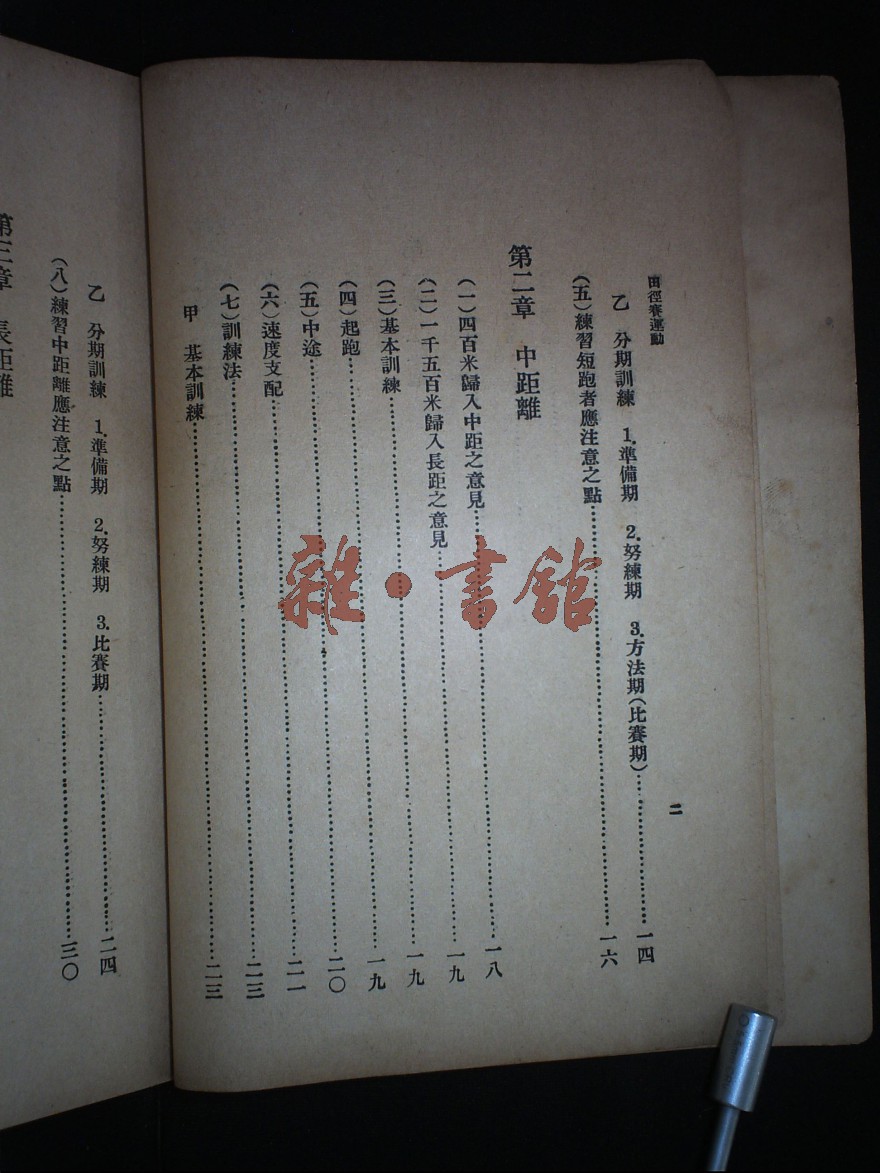 田徑賽運動
乙 分期訓練 1.準備期 2.努練期 3.方法期(比賽期)……一四
(五)練習短跑者應注意之點……一六
第二章 中距離
(一)四百米歸入中距之意見……一八
(二)一千五百米歸入長距之意見……一九
(三)基本訓練……一九
(四)起跑……一九
(五)中途……二〇
(六)速度支配……二一
(七)訓練法……二三
甲 基本訓練……二三
二
乙 分期訓練 1.準備期 2.努練期 3.比賽期……二四
(八)練習中距離應注意之點……三〇
第三章 長距離
雜·書館